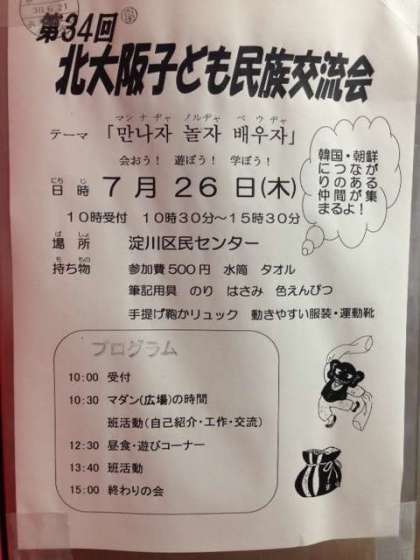 30.6.21
第34回
北大阪子ども民族交流会
マンナヂャ ノルヂャ ペウヂャ
テーマ 「만나자 놀자 배우자」
会おう! 遊ぼう! 学ぼう!
韓国・朝鮮
につなが
りのある
仲間が集
まるよ!
にち じ
日 時 7月26日(木)
10時受付 10時30分～15時30分
ば しょ
場 所 淀川区民センター
も もの
持ち物 参加費500円 水筒 タオル
筆記用具 のり はさみ 色えんぴつ
手提げ鞄かリュック 動きやすい服装・運動靴
プログラム
10:00 受付
10:30 マダン(広場)の時間
班活動(自己紹介・工作・交流)
12:30 昼食・遊びコーナー
13:40 班活動
15:00 終わりの会